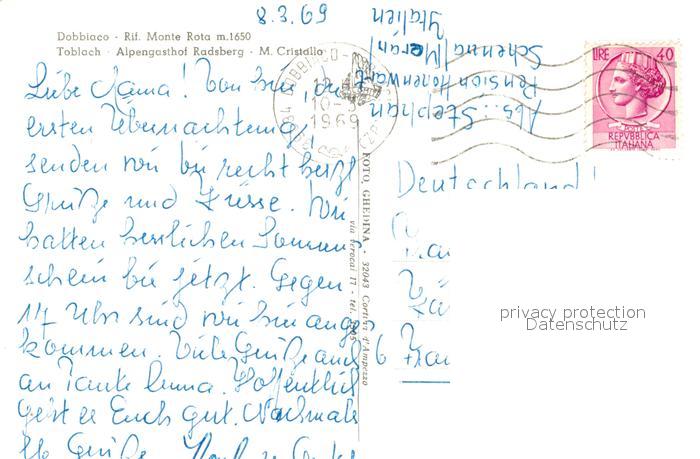 8.3.69
Dobbiaco - Rif. Monte Rota m.1650
Toblach - Alpengasthof Radsberg - M. Cristallo
Liebe Mama! Von hier, der
ersten Übernachtung,
senden wir dir recht herzl
Grüße und Küsse. Wir
hatten herrlichen Sonnen
schein bis jetzt. Gegen
14 Uhr sind wir hier ange
kommen. Viele Grüße auch
an Tante Anna. Hoffentlich
geht es Euch gut. Nochmals
Grüße
Abs.: Stephan
Pension Hohenwart
Schenna/Meran
Italien
DOBBIACO
1969
LIRE 40
POSTE
REPVBBLICA
ITALIANA
FOTO. GHEDINA - 32043 Cortina d'Ampezzo
via Verocai 11 - tel.
Deutschland!
privacy protection
Datenschutz